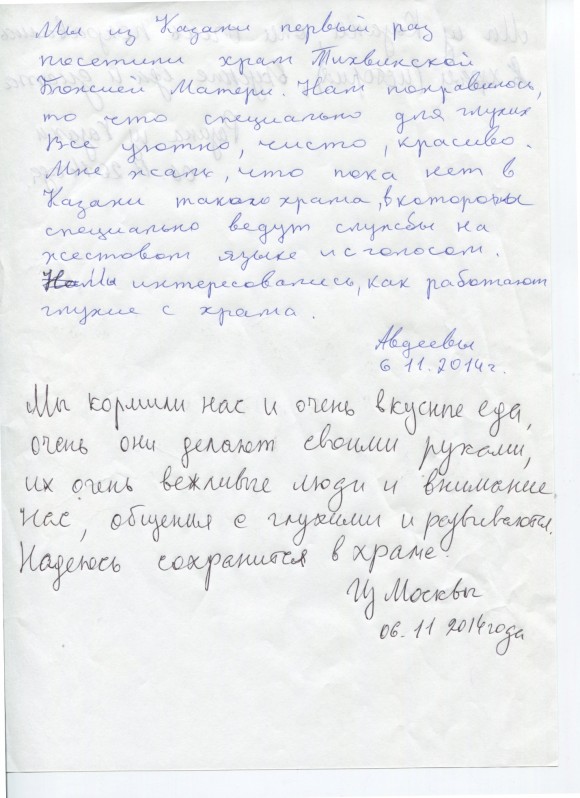 Мы из Казани первый раз
посетили храм Тихвинской
Божией Матери. Нам понравилось,
то что специально для глухих
Все уютно, чисто, красиво.
Мне жаль, что пока нет в
Казани такого храма, в которомы
специально ведут службы на
жестовом языке и с голосом.
Мы интересовались, как работают
глухие с храма.
Авдеевы
6 11.2014г.
Мы кормили нас и очень вкусные еда,
очень они делают своими руками,
их очень вежливые люди и внимание
нас, общения с глухими и развиваются.
Надеюсь сохранится в храме.
Из Москвы
06.11 2014 года